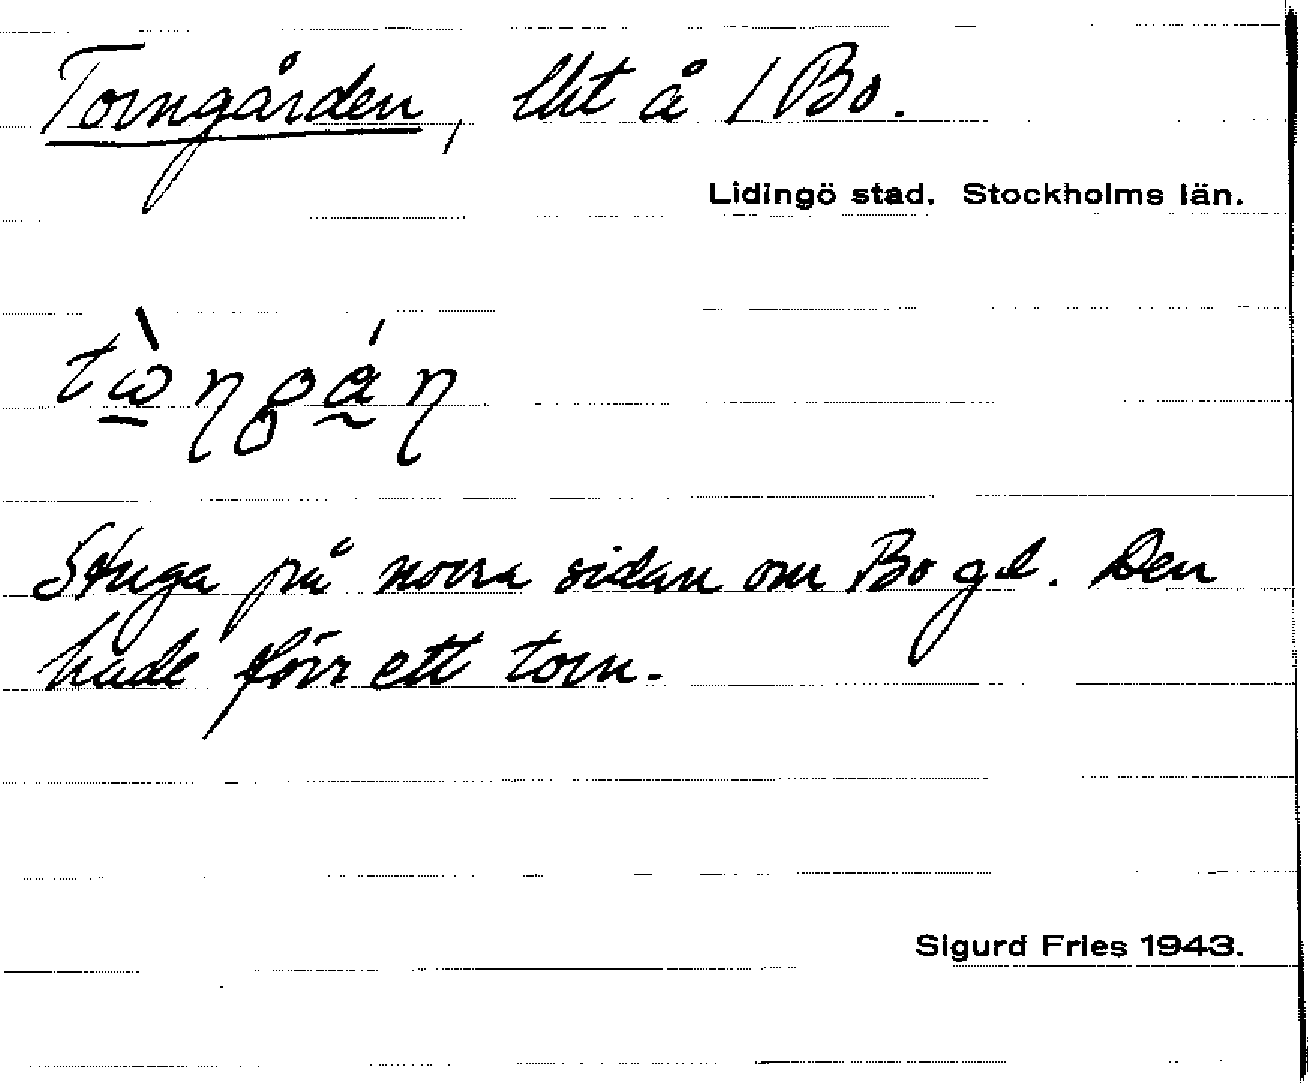 Torngården, lht å 1 Bo.
Lidingö stad. Stockholms län.
tὼ̠ŋgá̰ŋ
Stuga på norra sidan om Bo gd. Den
hade förr ett torn.
Sigurd Fries 1943.